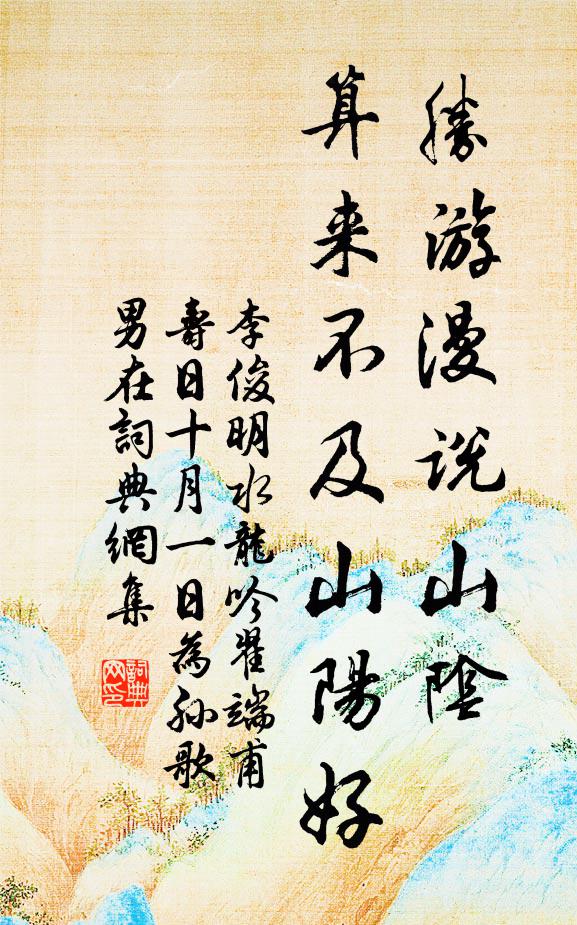 勝游漫说山陰
算来不及山陽好
李俊明水龍吟翟端甫
壽日十月一日為孙歌
男在詞典網集
詞典
网印